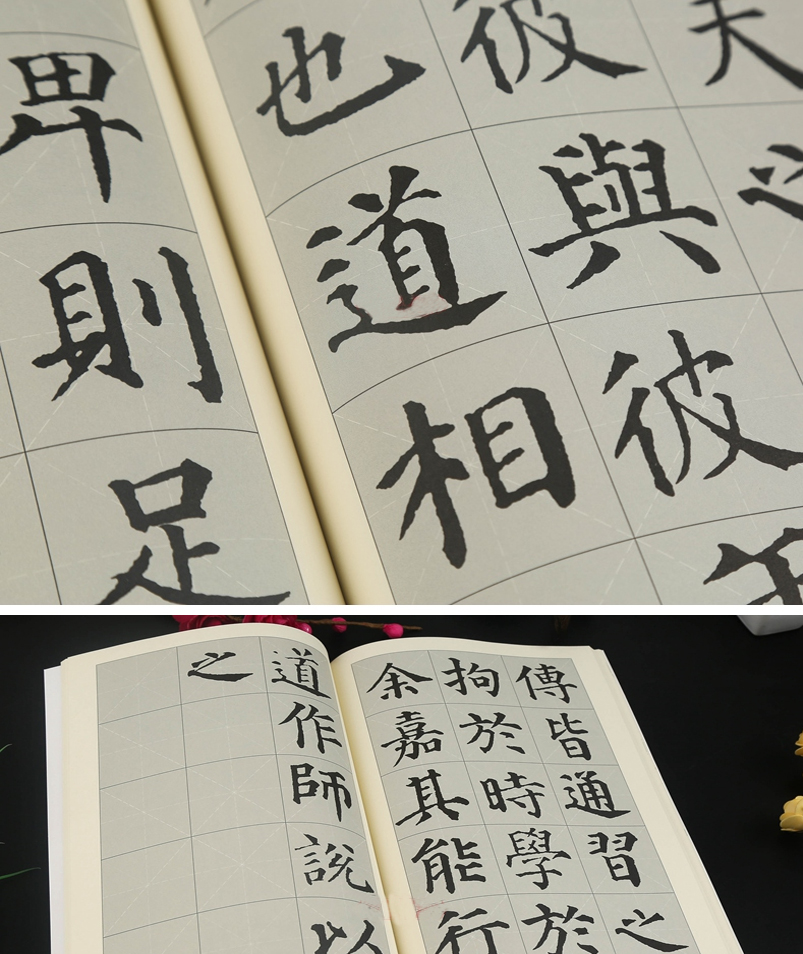 夫之
彼與彼年
也道相
卑則足
傳皆通習之
拘於時學於
余嘉其能行
道作師說以
之